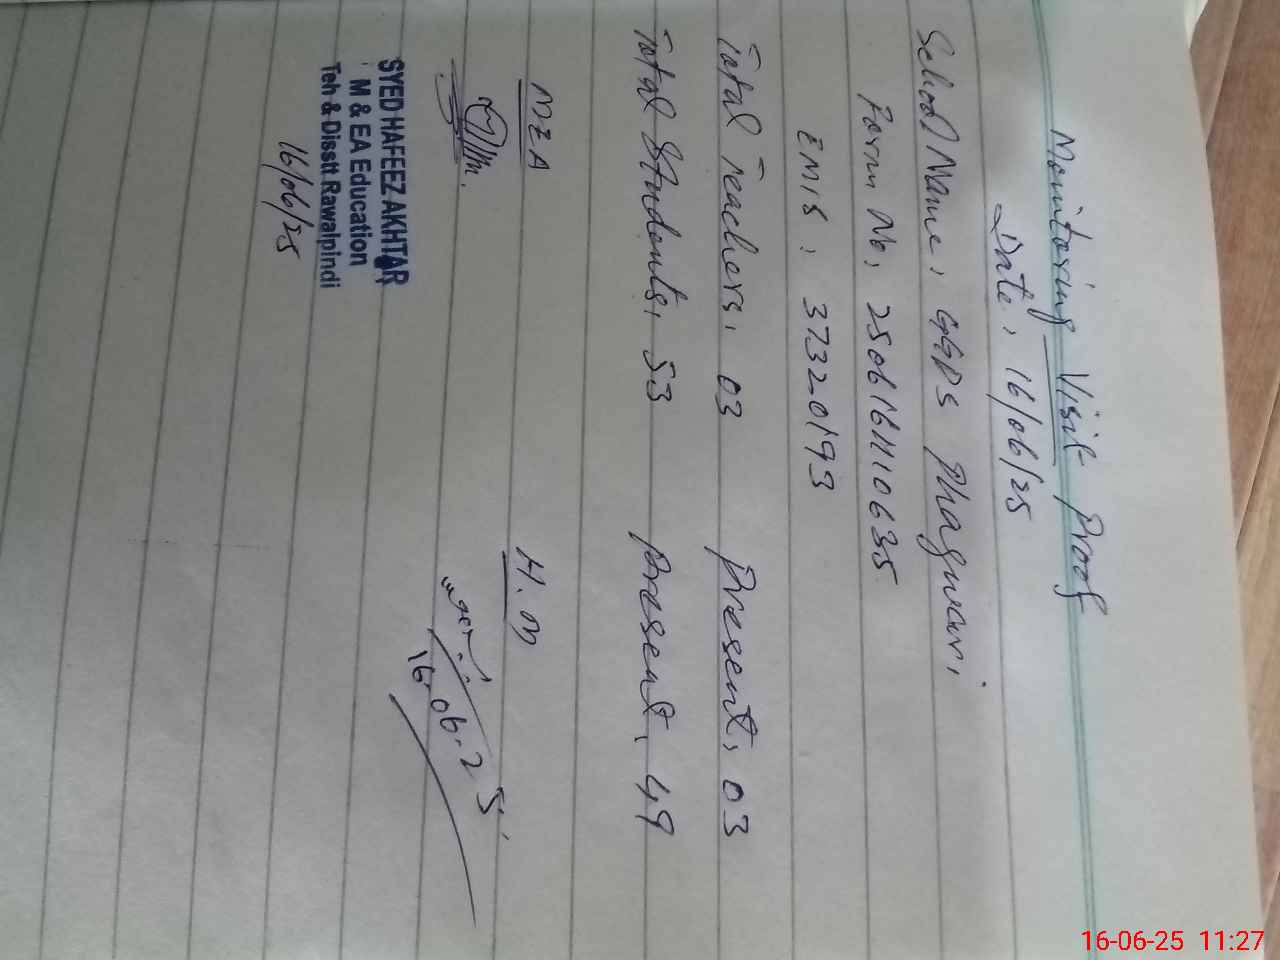 Monitoring Visit Proof
Date: 16/06/25
School Name: GGPS Phagwari
Form No: 250616111110635
EMIS: 37320193
Total Teachers: 03 Present: 03
Total Students: 53 Present: 49
MEA H.M
16.06.25
SYED HAFEEZ AKHTAR
M & EA Education
Teh & Disstt Rawalpindi
16/06/25
16-06-25 11:27